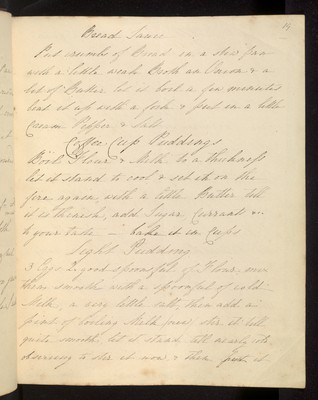 Bread Sauce
Put crumbs of Bread in a stew pan
with a little weak Broth an Onion & a
bit of Butter let it boil a few minutes
beat it up with a fork & put in a little
Cream Pepper & Salt
Cup Puddings
Boil Flour & Milk to a thickness
let it stand to cool & set it on the
fire again with a little Butter till
it is thinish, add Sugar Currants &c
to your taste — bake it in Cups
Light Pudding
3 Eggs 2 good spoonsful of Flour, mix
them smooth with a spoonful of cold
Milk, a very little salt, then add a
pint of boiling Milk, stir it till
quite smooth, let it stand till nearly cold,
observing to stir it now & then, it